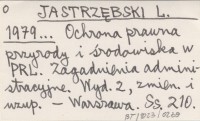 0 JASTRZĘBSKI L.
1979... Ochrona prawna
przyrody i środowiska w
PRL. Zagadnienia admini-
stracyjne. Wyd. 2, zmien. i
uzup. – Warszawa. Ss. 210.